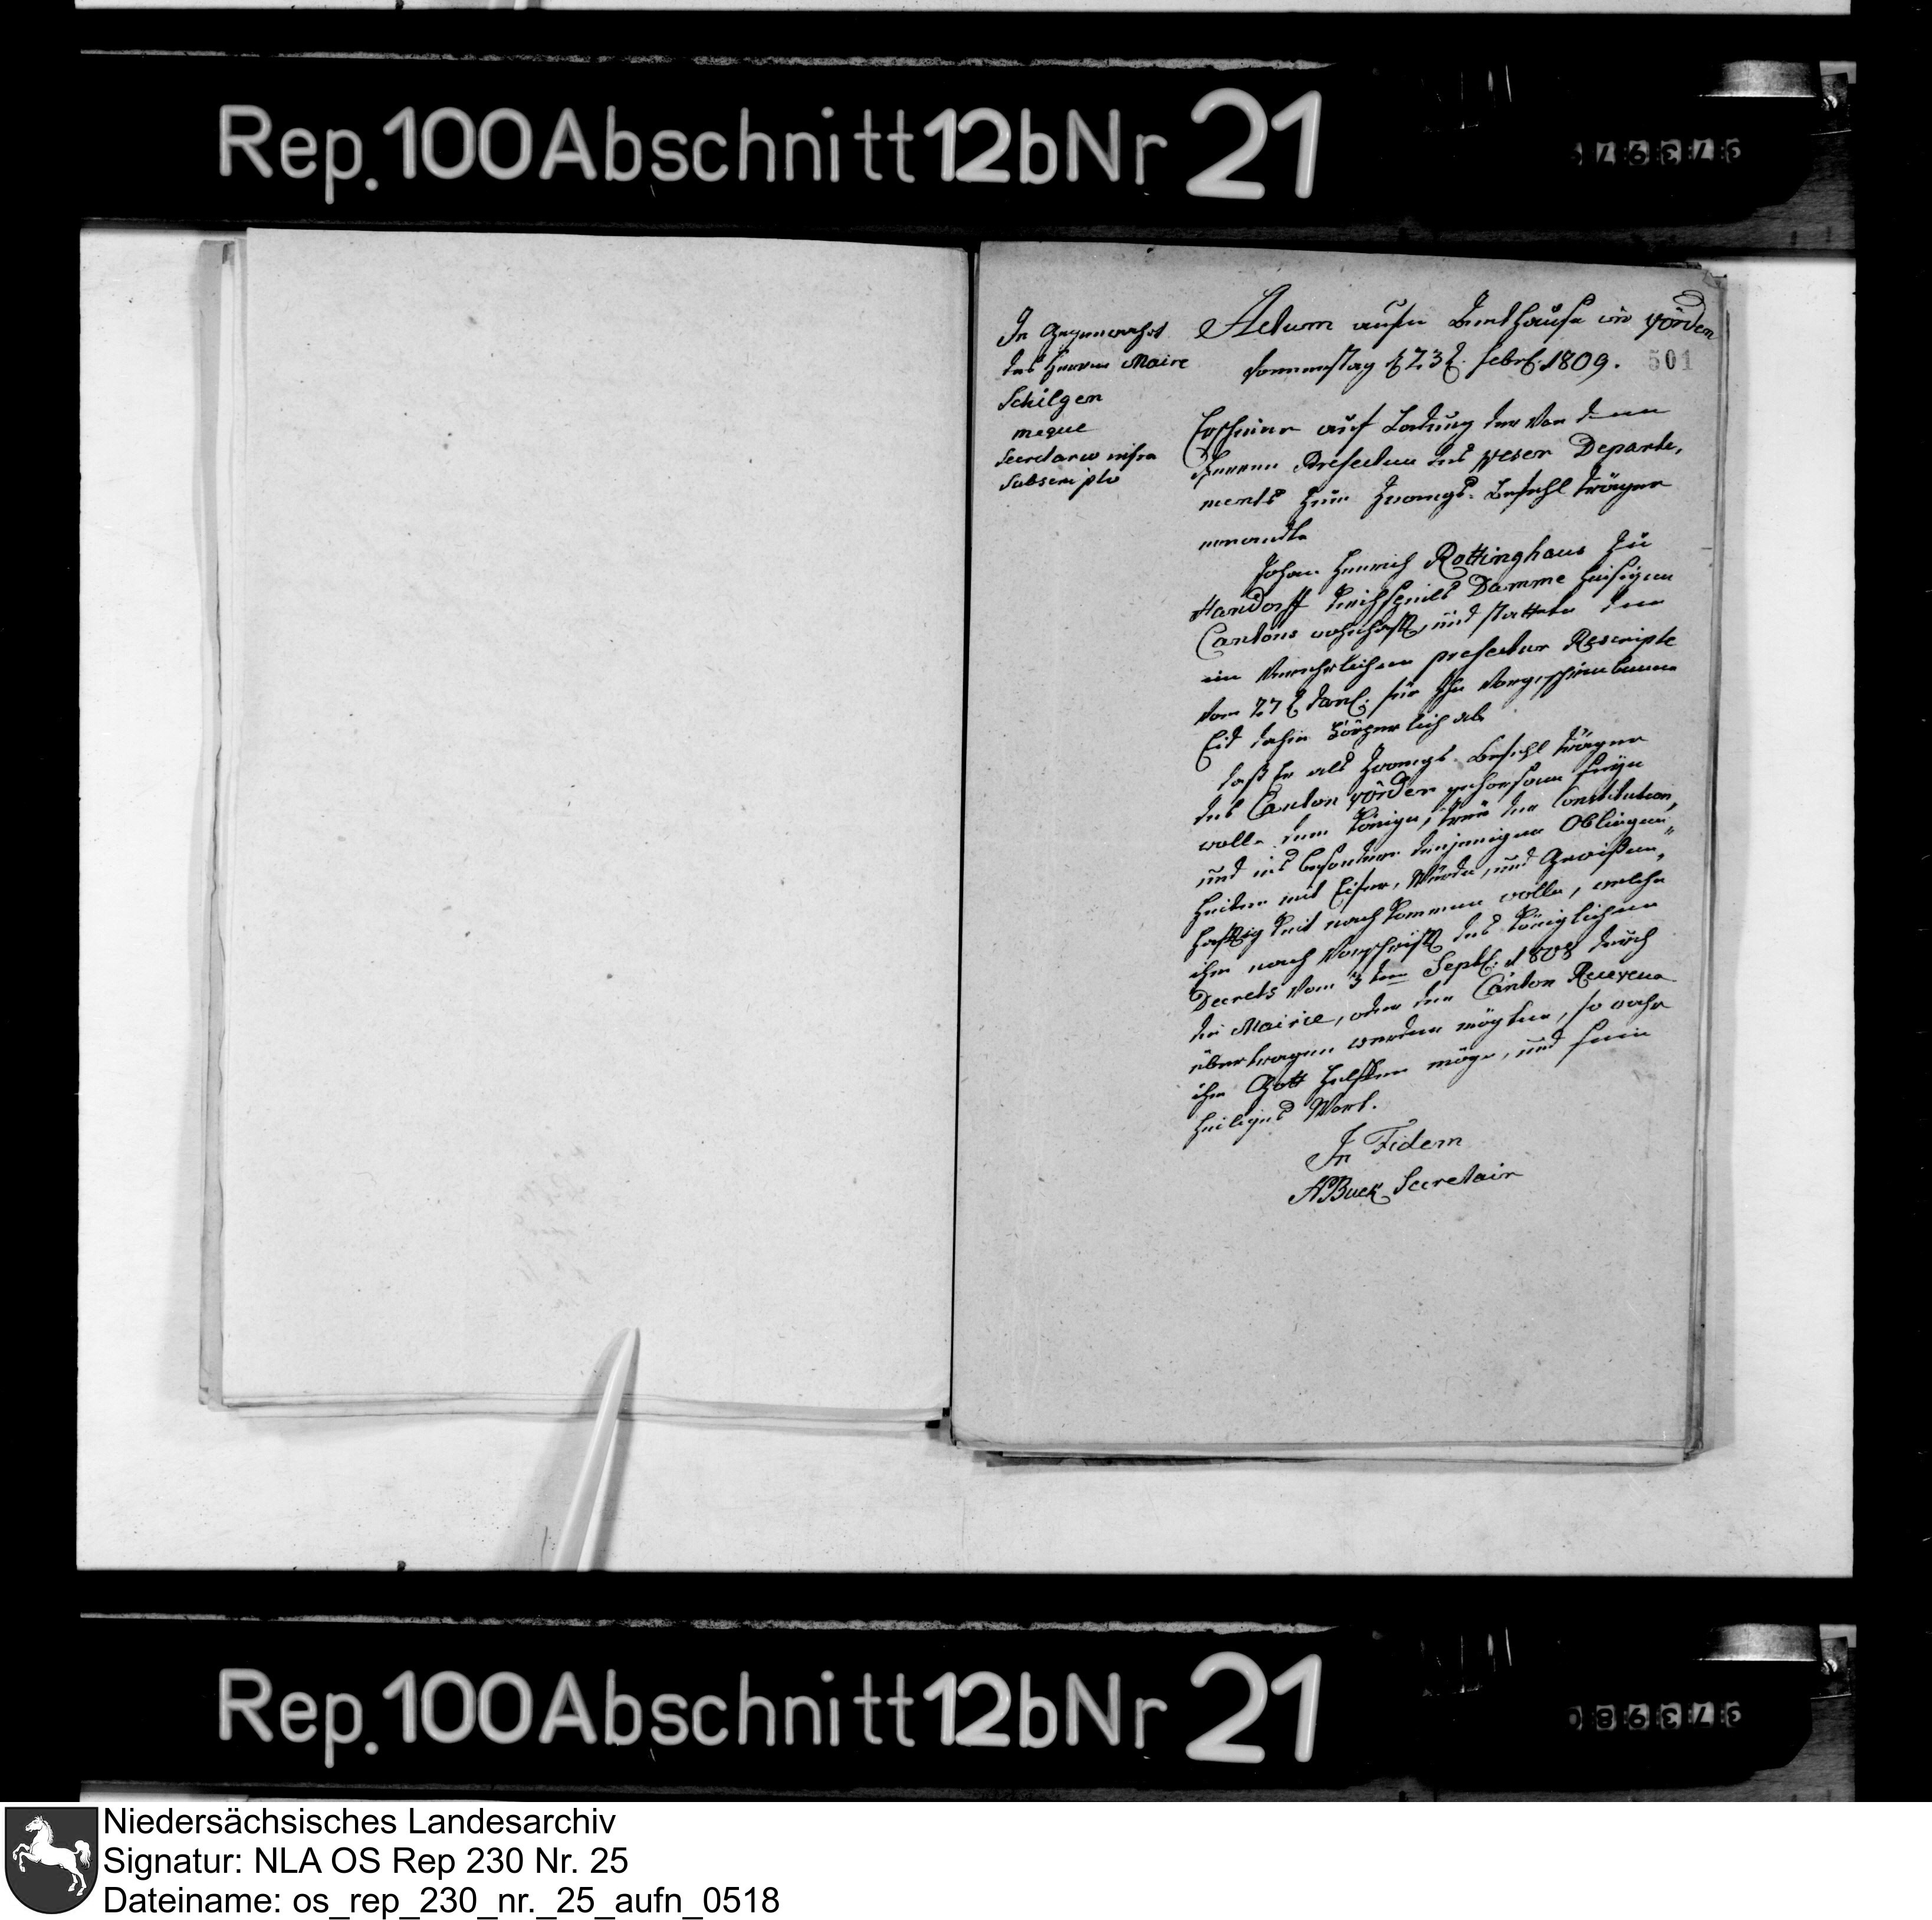 Rep. 100 Abschnitt 12b Nr 21
In Gegenwarth
des Herren Maire
Schilgen
meque
Secretario infra
Subscripto
Actum aufm Amthause in Vörden
Donnerstag 23 Febr. 1809.
501
Erscheinet auf Ladung der von dem
Herren Prefecten des Weser Departe,
ments zum Zwangs-Befehl träger
ernandte
Johan Henrich Rottinghaus zu
Handorff Kirchspiels Damme hiesigen
Cantons wohnhafft, und stattete den
im Verehrlichen prefectur Rescripte
vom 27 Jan. für Ihn Vorgeschriebenen
Eid dahin Körperlich ab
daß Er als Zwangs-Befehl träger
des Canton Vörden gehorsam seyn
wolle dem Könige, treu der Constitution,
und ins besondere denjenigen Obliegen,,
heiten mit Eifer, Würde, und Gewißen,,
hafftigkeit nachkommen wolle, welche
ihm nach Vorschrifft des Königlichen
Decrets vom 3ten Sept. 1808 durch
die Mairie, oder den Canton Receveur
übertragen werden mögten, so wahr
ihm Gott helffen möge, und sein
heiliges Wort.
In Fidem
ABuck Secretair
Rep. 100 Abschnitt 12b Nr 21
Niedersächsisches Landesarchiv
Signatur: NLA OS Rep 230 Nr. 25
Dateiname: os_rep_230_nr._25_aufn_0518